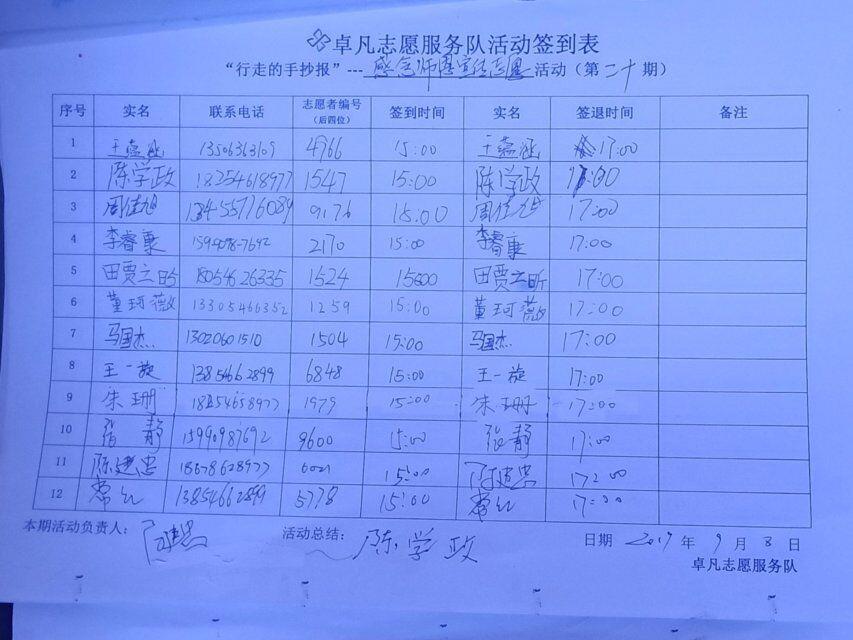 卓凡志愿服务队活动签到表
“行走的手抄报”---感念师恩宣传志愿活动（第二十期）
序号 实名 联系电话 志愿者编号（后四位） 签到时间 实名 签退时间 备注
1 王蕴涵 13506363109 4966 15:00 王蕴涵 17:00
2 陈学政 18254618977 1547 15:00 陈学政
3 周佳旭 9176 15:00 周佳旭 17:00
4 李睿康 2170 15:00 李睿康 17:00
5 田贾之昕 18054626335 1524 15:00 田贾之昕 17:00
6 董珂薇 13305466352 1259 15:00 董珂薇 17:00
7 马国杰 13020601510 1504 15:00 马国杰 17:00
8 王一旋 13854662899 6848 15:00 王一旋 17:00
9 朱珊 18254658977 1979 15:00 朱珊 17:00
10 张静 15990987692 9600 15:00 张静 17:00
11 陈建忠 18678628977 15:00 陈建忠 17:00
12 常红 13854662899 5778 15:00 常红 17:00
本期活动负责人： 陈建忠 活动总结： 陈学政 日期 2017年9月8日
卓凡志愿服务队